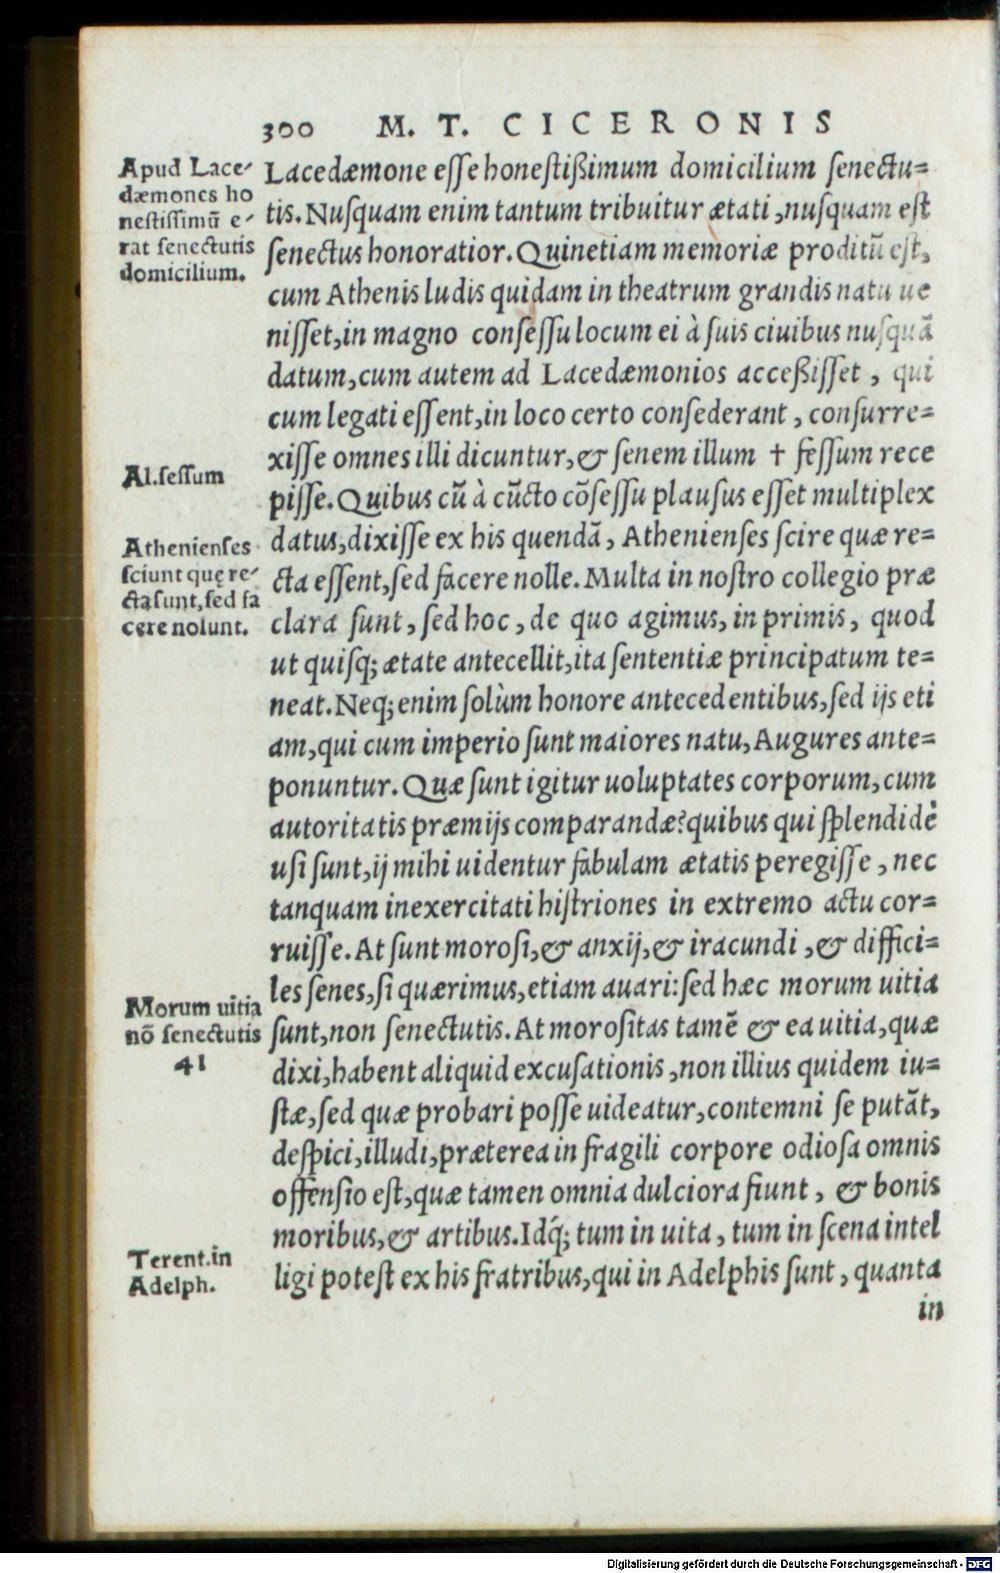 300 M. T. CICERONIS
Apud Lace-
dæmones ho
nestissimū e-
rat senectutis
domicilium.
Lacedæmone esse honestißimum domicilium senectu=
tis. Nusquam enim tantum tribuitur ætati, nusquam est
senectus honoratior. Quinetiam memoriæ proditū est,
cum Athenis ludis quidam in theatrum grandis natu ue
nisset, in magno consessu locum ei à suis ciuibus nusquā
datum, cum autem ad Lacedæmonios acceßisset, qui
cum legati essent, in loco certo consederant, consurre=
xisse omnes illi dicuntur, & senem illum † fessum rece
Al. sessum
pisse. Quibus cū à cūcto cōsessu plausus esset multiplex
datus, dixisse ex his quendā, Athenienses scire quæ re=
Athenienses
sciunt quę re-
cta sunt, sed fa
cere nolunt.
cta essent, sed facere nolle. Multa in nostro collegio præ
clara sunt, sed hoc, de quo agimus, in primis, quod
ut quisq; ætate antecellit, ita sententiæ principatum te=
neat. Neq; enim solùm honore antecedentibus, sed ijs eti
am, qui cum imperio sunt maiores natu, Augures ante=
ponuntur. Quæ sunt igitur uoluptates corporum, cum
autoritatis præmijs comparandæ? quibus qui splendidè
usi sunt, ij mihi uidentur fabulam ætatis peregisse, nec
tanquam inexercitati histriones in extremo actu cor=
ruisse. At sunt morosi, & anxij, & iracundi, & diffici=
les senes, si quærimus, etiam auari: sed hæc morum uitia
Morum uitia
nō senectutis
41
sunt, non senectutis. At morositas tamē & ea uitia, quæ
dixi, habent aliquid excusationis, non illius quidem iu=
stæ, sed quæ probari posse uideatur, contemni se putāt,
despici, illudi, præterea in fragili corpore odiosa omnis
offensio est, quæ tamen omnia dulciora fiunt, & bonis
moribus, & artibus. Idq́; tum in uita, tum in scena intel
Terent. in
Adelph.
ligi potest ex his fratribus, qui in Adelphis sunt, quanta
in
Digitalisierung gefördert durch die Deutsche Forschungsgemeinschaft - DFG